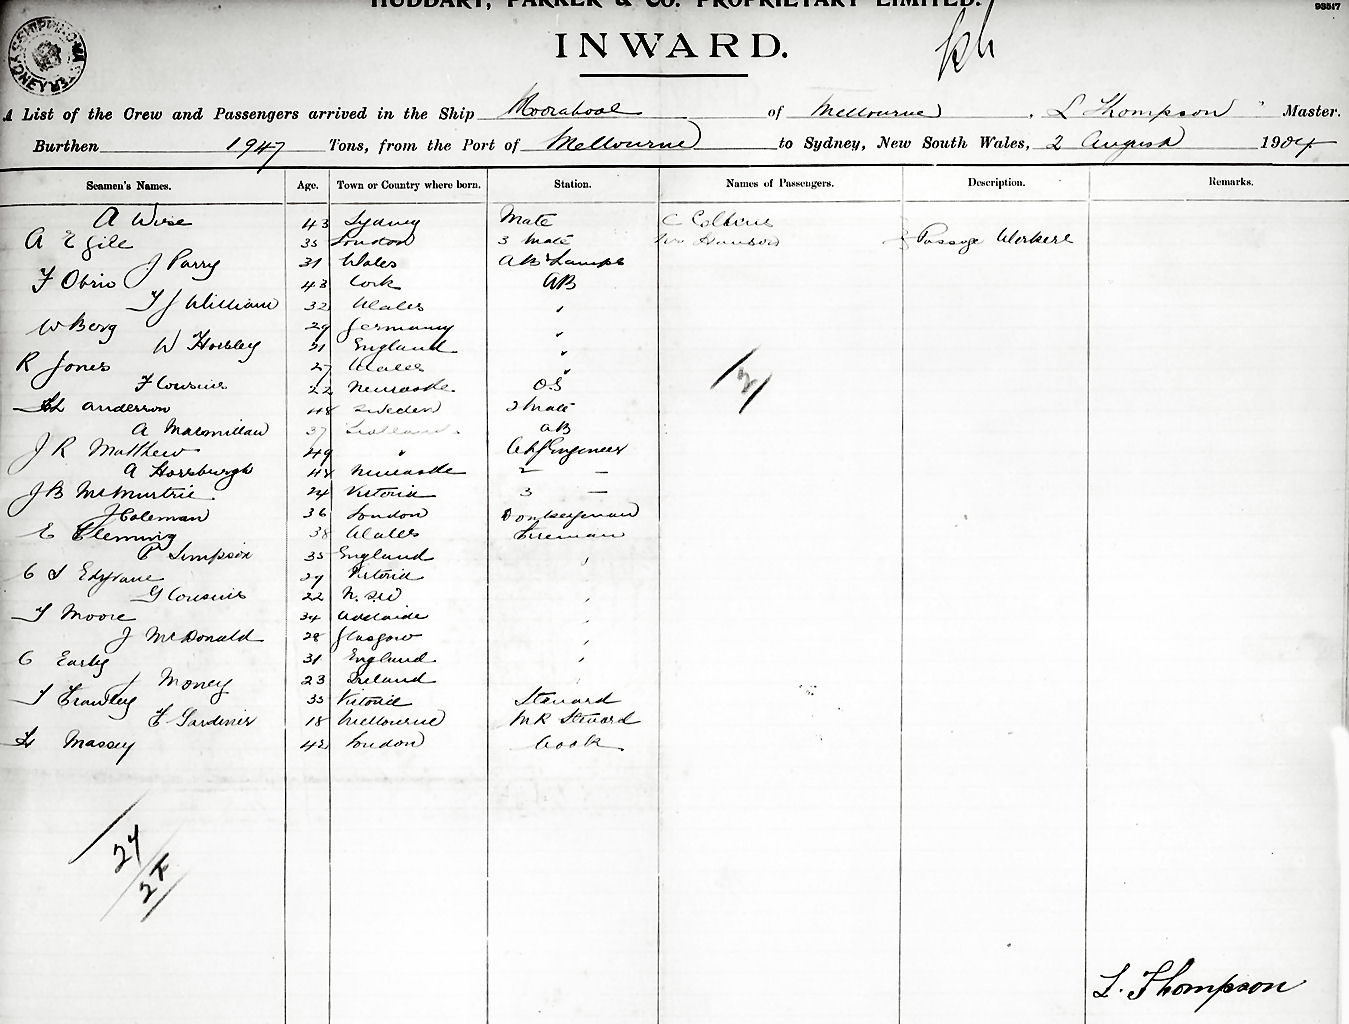 HUDDART, PARKER & CO. PROPRIETARY LIMITED.
93517
INWARD.
A List of the Crew and Passengers arrived in the Ship Moorabool of Melbourne, L Thompson Master.
Burthen 1947 Tons, from the Port of Melbourne to Sydney, New South Wales, 2 August 1904
Seamen's Names. Age. Town or Country where born. Station. Names of Passengers. Description. Remarks.
A Wise 43 Sydney Mate C
A E Gill 35 London 3 Mate Passage Workers
J Parry 31 Wales AB Lamps
F Obrio 43 Cork AB
T J William 32 Wales "
W Berg 29 Germany "
W Horsley 21 England "
R Jones 27 Wales "
F Cousins 22 Newcastle OS
Anderson 48 Sweden 2 Mate
A Macmillan 37 Scotland AB
J R Matthew 49 " Chf Engineer
A Horsburgh 44 Newcastle 2 —
J B McMurtrie 24 Victoria 3 —
J Coleman 36 London Donkeyman
E Fleming 38 Wales Fireman
P Simpson 35 England "
C S Edyvane 29 Victoria
G Cousins 22 N. S W "
T Moore 34 Adelaide "
J McDonald 28 Glasgow "
C Early 31 England "
J Money 23 Ireland
T Frawley 35 Victoria Steward
F Gardiner 18 Melbourne MR Steward
Massey 42 London Cook
2
24
L. Thompson